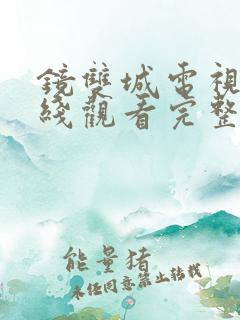 鏡雙城電視
綫觀看完整
能量猪
未经同意禁止转载